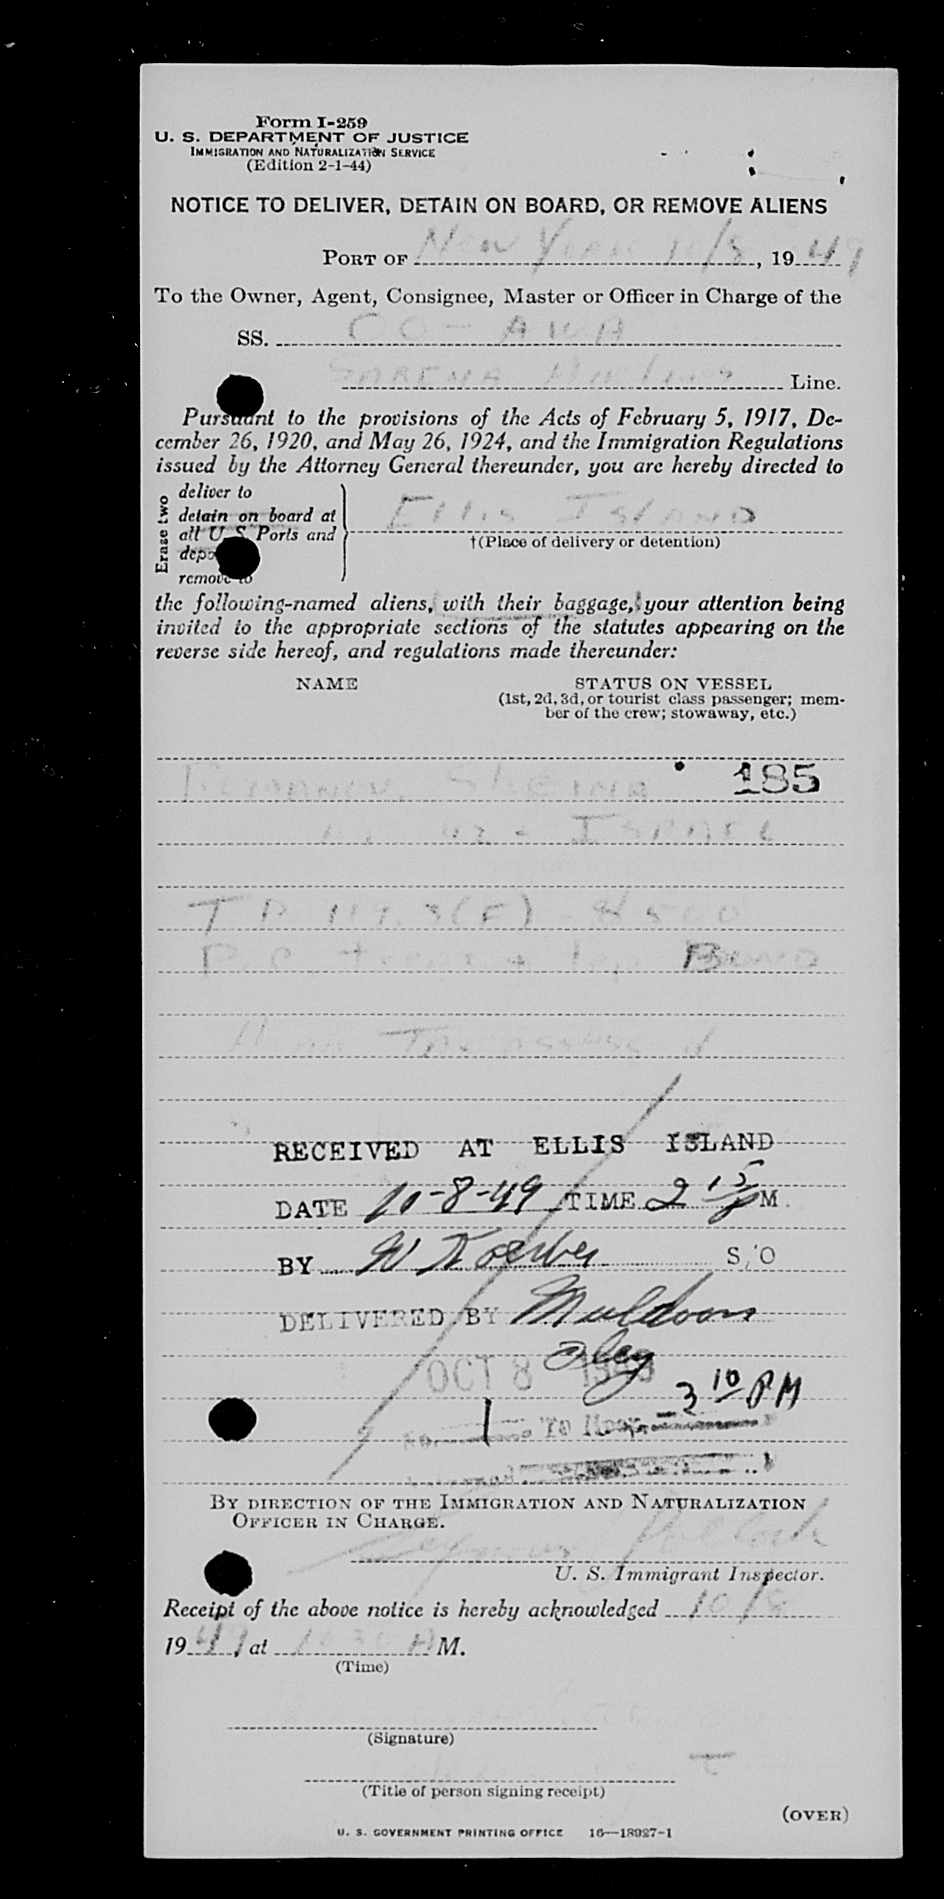 Form I-259
U. S. DEPARTMENT OF JUSTICE
IMMIGRATION AND NATURALIZATION SERVICE
(Edition 2-1-44)
NOTICE TO DELIVER, DETAIN ON BOARD, OR REMOVE ALIENS
PORT OF New York 10/8, 1949
To the Owner, Agent, Consignee, Master or Officer in Charge of the
SS. OO-AWA
SABENA Airlines Line.
Pursuant to the provisions of the Acts of February 5, 1917, De-
cember 26, 1920, and May 26, 1924, and the Immigration Regulations
issued by the Attorney General thereunder, you are hereby directed to
Erase two
deliver to
detain on board at
all U. S. Ports and
remove to
ELLIS ISLAND
†(Place of delivery or detention)
the following-named aliens, with their baggage, your attention being
invited to the appropriate sections of the statutes appearing on the
reverse side hereof, and regulations made thereunder:
NAME
STATUS ON VESSEL
(1st, 2d, 3d, or tourist class passenger; mem-
ber of the crew; stowaway, etc.)
185
42 - ISRAEL
T.D. 119.3(F) $500
BOND
RECEIVED AT ELLIS ISLAND
DATE 10-8-49 TIME 2 15 PM.
BY W Koerber S, O
DELIVERED BY Muldoon
OCT 8
3 10 PM
BY DIRECTION OF THE IMMIGRATION AND NATURALIZATION
OFFICER IN CHARGE.
Seymour Pollock
U. S. Immigrant Inspector.
Receipt of the above notice is hereby acknowledged 10/8
1949, at 10 30 AM.
(Time)
(Signature)
(Title of person signing receipt)
(OVER)
U. S. GOVERNMENT PRINTING OFFICE 16—18927-1